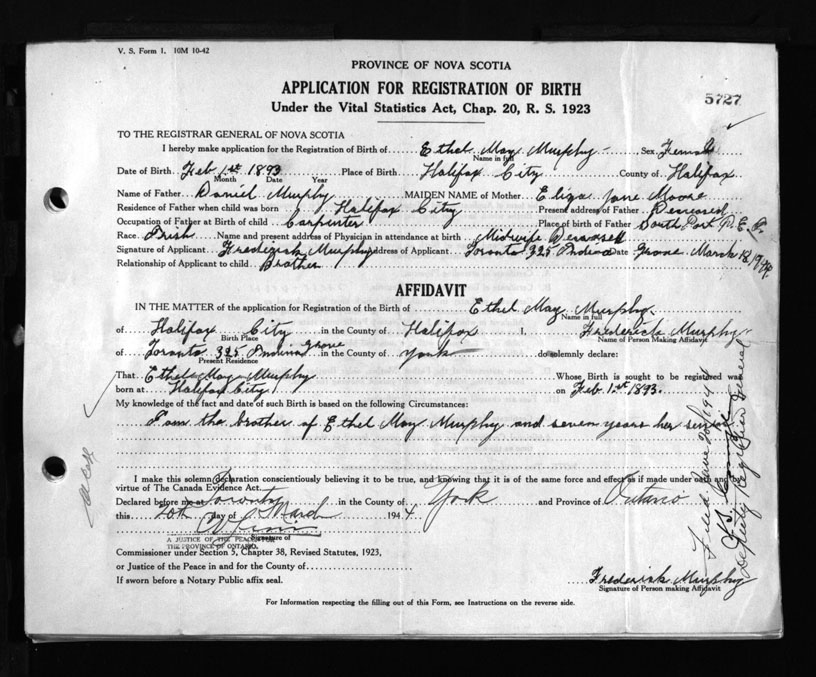 V. S. Form 1. 10M 10-42
PROVINCE OF NOVA SCOTIA
APPLICATION FOR REGISTRATION OF BIRTH
5727
Under the Vital Statistics Act, Chap. 20, R. S. 1923
TO THE REGISTRAR GENERAL OF NOVA SCOTIA
I hereby make application for the Registration of Birth of Ethel May Murphy Sex Female
Name in full
Date of Birth Feb 1st 1893 Place of Birth Halifax City County of Halifax
Month Date Year
Name of Father Daniel Murphy MAIDEN NAME of Mother Eliza Jane Moore
Residence of Father when child was born Halifax City Present address of Father Deceased
Occupation of Father at Birth of child Carpenter Place of birth of Father South Port P. E. I.
Race Irish Name and present address of Physician in attendance at birth Midwife Deceased
Signature of Applicant Frederick Murphy Address of Applicant Toronto 325 Indian Grove Date March 18 1944
Relationship of Applicant to child Brother
AFFIDAVIT
IN THE MATTER of the application for Registration of the Birth of Ethel May Murphy.
Name in full
of Halifax City in the County of Halifax I, Frederick Murphy
Birth Place Name of Person Making Affidavit
of Toronto 325 Indian Grove in the County of York do solemnly declare:
Present Residence
That Ethel May Murphy Whose Birth is sought to be registered was
born at Halifax City on Feb 1st 1893.
My knowledge of the fact and date of such Birth is based on the following Circumstances:
I am the brother of Ethel May Murphy and seven years her senior
I make this solemn declaration conscientiously believing it to be true, and knowing that it is of the same force and effect as if made under oath and
virtue of The Canada Evidence Act.
Declared before me at Toronto in the County of York and Province of Ontario
this 20th day of March 1944
Signature of
A JUSTICE OF THE PEACE FOR
THE PROVINCE OF ONTARIO.
Commissioner under Section 5, Chapter 38, Revised Statutes, 1923,
or Justice of the Peace in and for the County of
If sworn before a Notary Public affix seal.
Frederick Murphy
Signature of Person making Affidavit
For Information respecting the filling out of this Form, see Instructions on the reverse side.
Deputy Registrar General